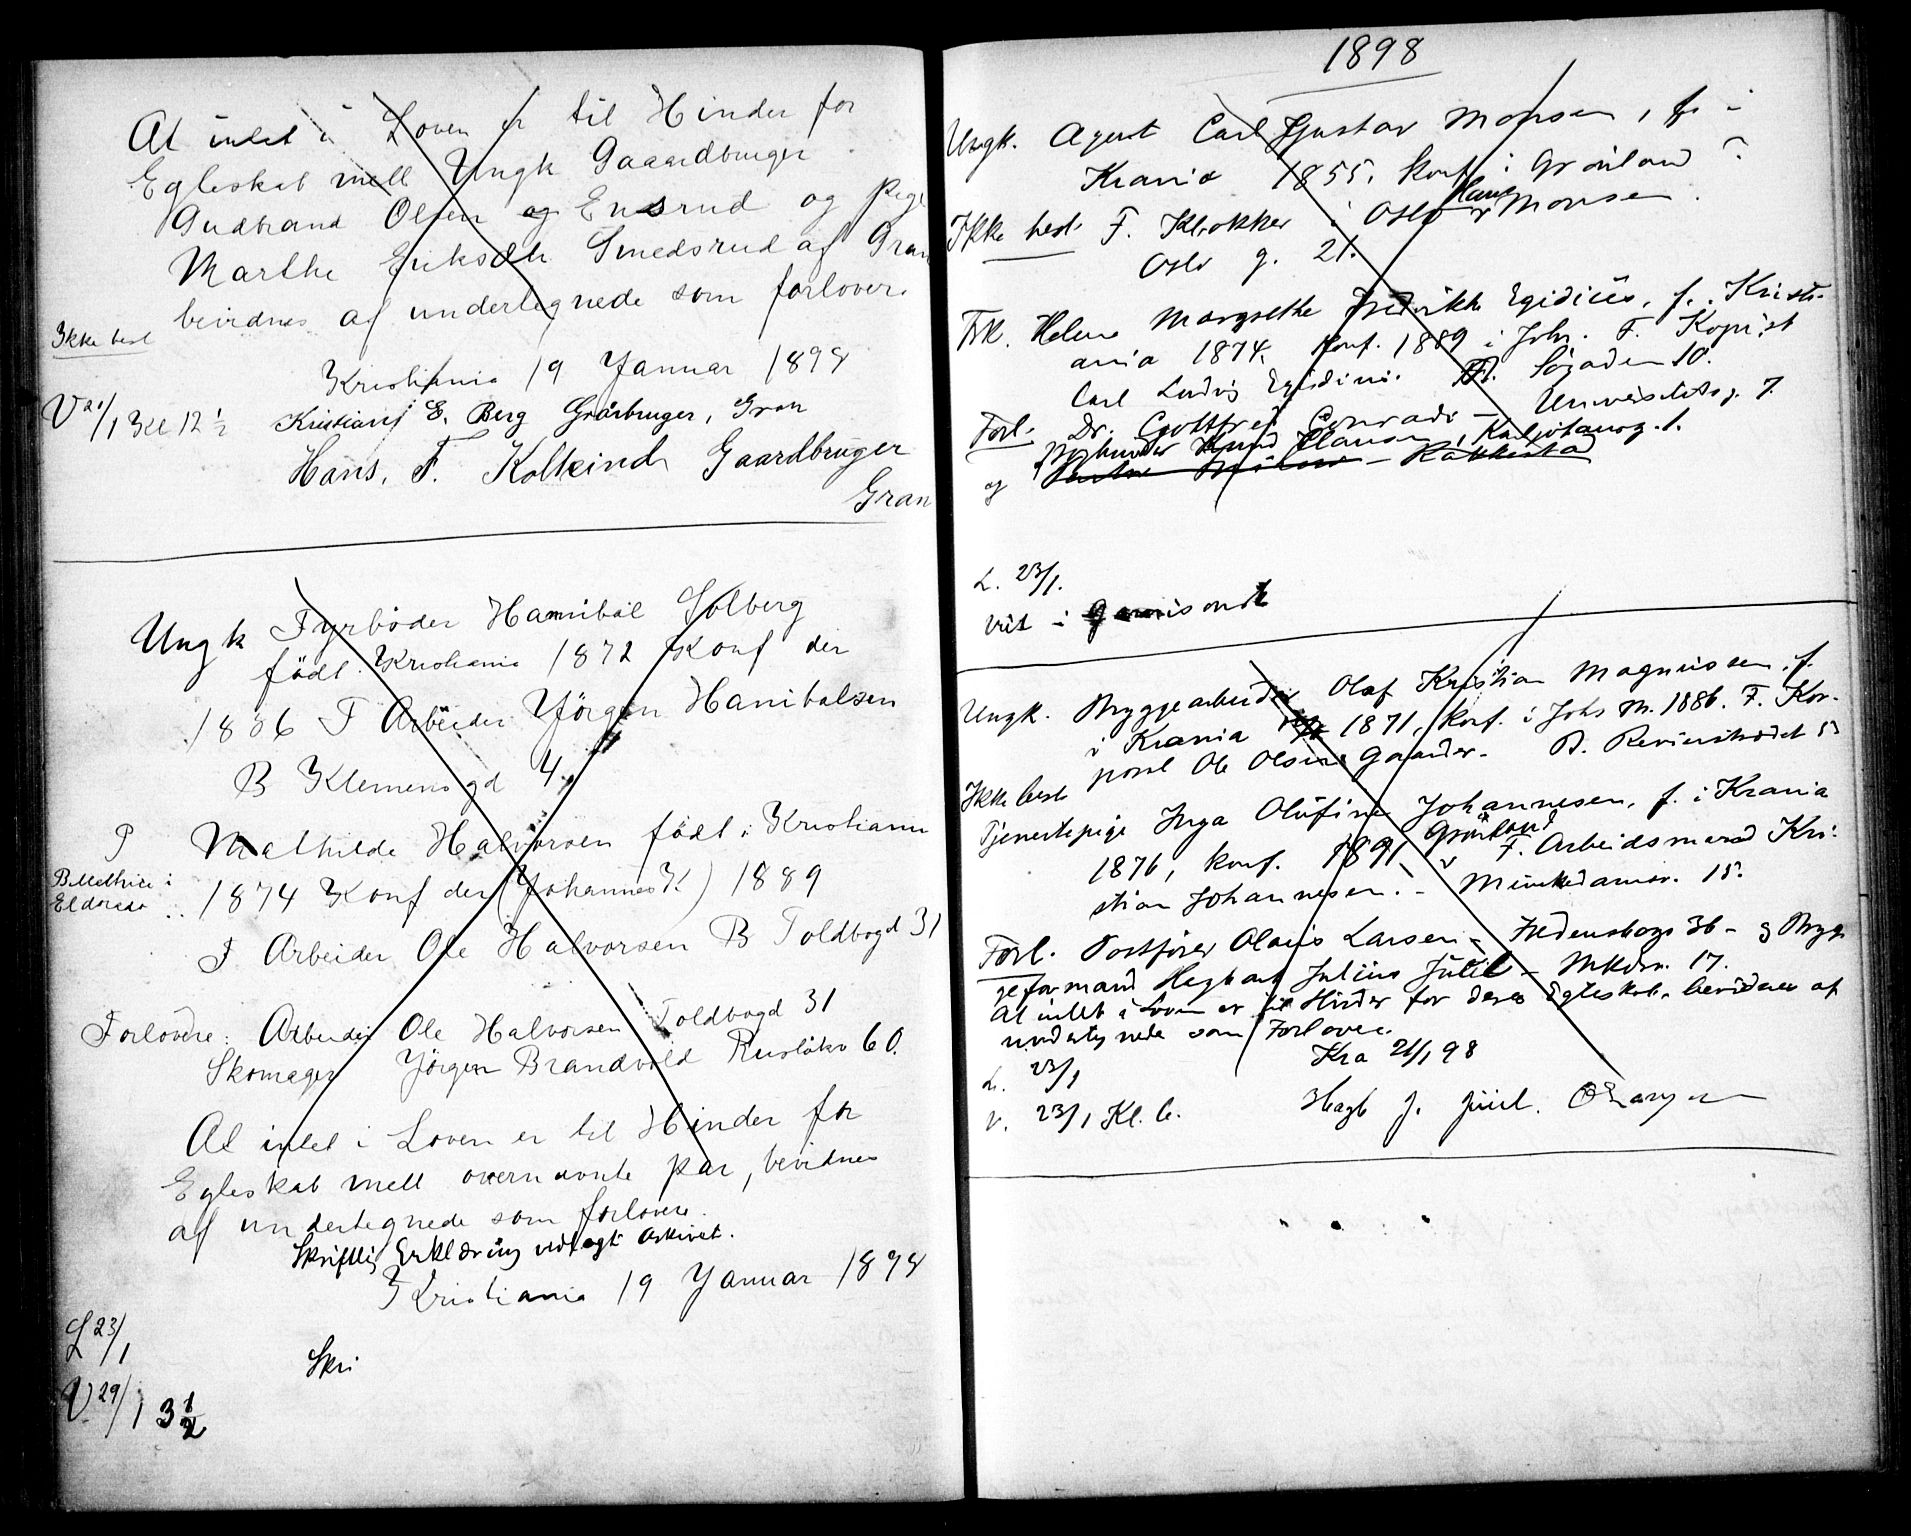 At intet i Loven er til Hinder for
Egteskab mell Ungk Gaaardbruger
Gudbrand Olsen Ensrud og Pige
Marthe Eriksdt Smedsrud af Gran
bevidnes af undertegnede som forlover.
Ikke best
Kristiania 19 Januar 1898
V 20/1 Kl 12 1/2
Kristian E. Berg Gårbruger, Gran
Hans. F. Kolkind Gaardbruger
Gran
Ungk Fyrböder Hannibal Solberg
födt Kristiania 1872 Konf der
1886 F Arbeider Jörgen Hanibalsen
B Klemensgd 4
P Mathilde Halvorsen födt i Kristiania
B. Mathice i
Eldorado
1874 Konf der (Johannes K.) 1889
F Arbeider Ole Halvorsen B Toldbogd 31
Forlovere: Arbeider Ole Halvorsen Toldbogd 31
Skomager Jörgen Brandvold Rusløkv 60.
At intet i Loven er til Hinder for
Egteskab mell overnævnte par, bevidnes
af undertegnede som forlovere.
Skriftlig Erklæring vedlagt Arkivet.
Kristiania 19 Januar 1898
L 23/1
Skri
V 29/1 3 1/2
1898
Ungk. Agent Carl Gustav Monsen, f. i
Krania 1855, konf. i Grönland ?
Ikke best. F. Klokker i Oslo Monsen.
Oslo g. 21.
Frk. Helene Margrethe Fredrikke Egidius, f. Kristi-
ania 1874. Konf. 1889 i Johs. F. Kopist
Carl Ludvig Egidius. B. Søgaden 10.
Forl. Dr. Gottfred Conradi — Universitetsg. 7.
Clausen, Karl Johansg. 1.
og
L. 23/1.
Viet i Garnisons
Ungk. Bryggearbeider Olaf Kristian Magnussen, f.
i Krania 1871, konf. i Johs M. 1886. F. Kor-
poral Ole Olsen Gaarder. B. Revierstrædet 5
Ikke best
Tjenestepige Inga Olufine Johannesen, f. i Krania
1876, konf. 1891 Grönland F. Arbeidsmand Kri-
stian Johannesen. — Munkedamsv. 15.
Forl. Postfører Olaus Larsen — Fredensborgv 36 — og Bryg
geformand Hagbart Julius Juul — Mkdv. 17.
At intet i Loven er til Hinder for deres Egteskab, bevidnes af
undertegnede som Forlovere.
L. 23/1
Kra 21/1 98
V. 23/1 Kl. 6.
Hagb J. Juul. O Larsen